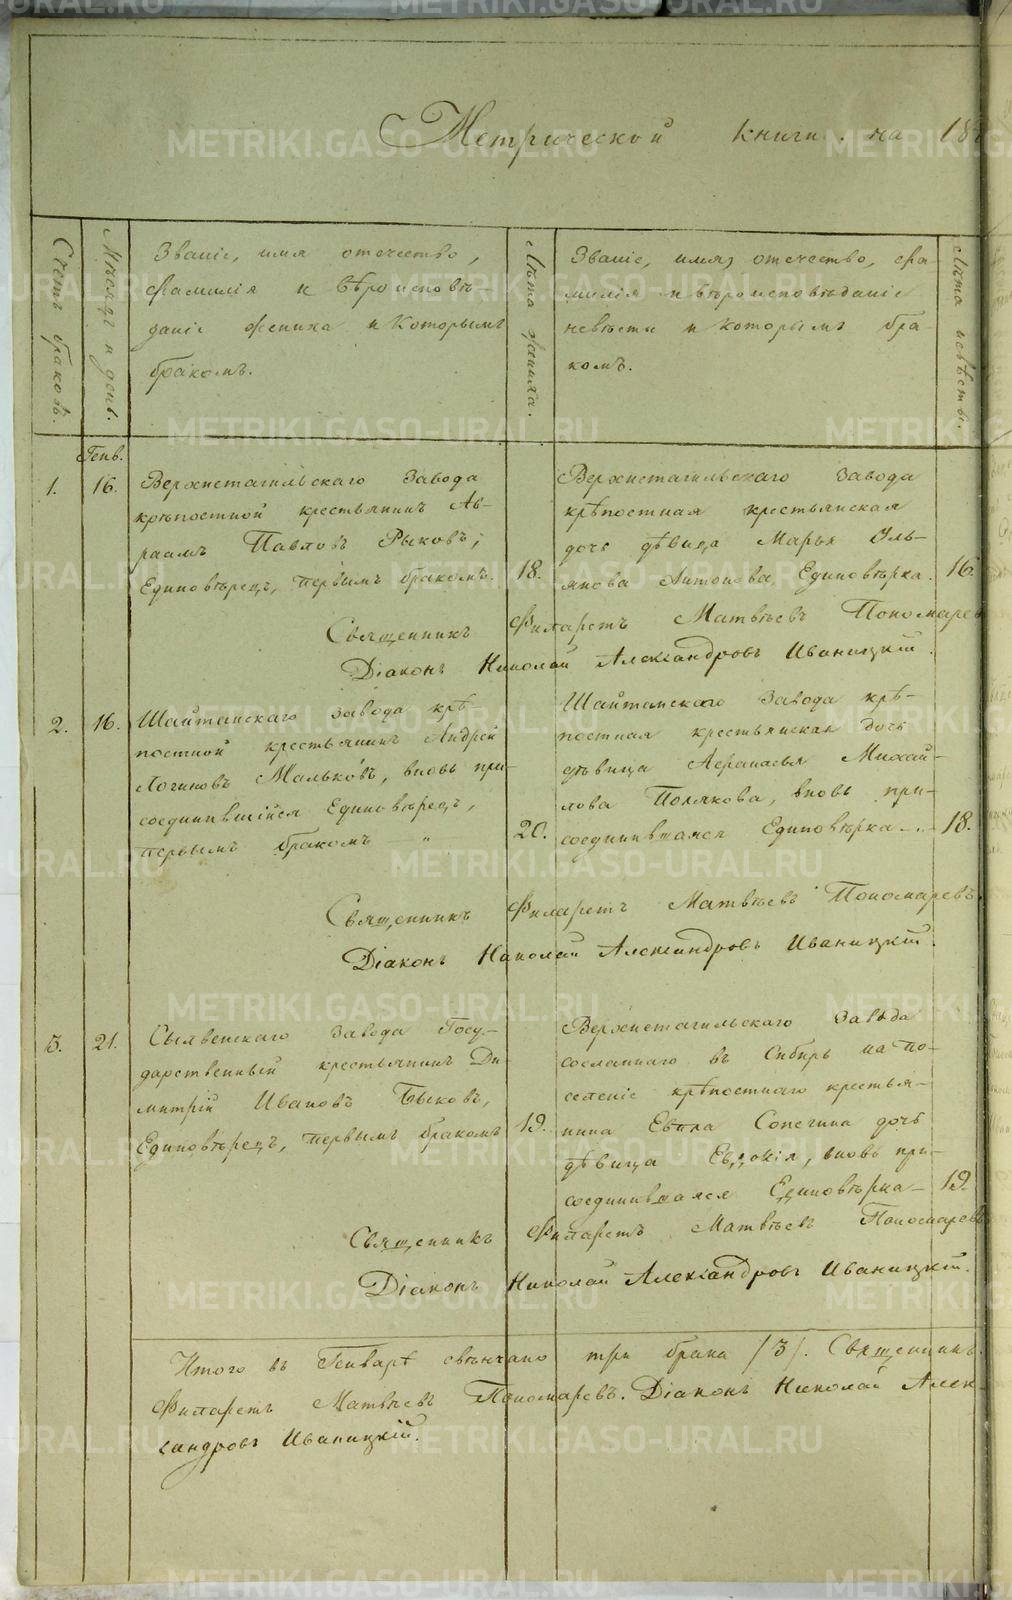 Метрической книги на 18
Счетъ браковъ.
Мѣсяцъ и день.
Званіе, имя отечество,
фамилія и вѣроисповѣ-
даніе жениха и Которымъ
бракомъ.
Лѣта жениха.
Званіе, имя, отечество, фа-
милія и вѣроисповѣданіе
невѣсты и Которымъ бра-
комъ.
Лѣта невѣсты.
Генв.
1. 16.
Верхнетагильскаго Завода
крѣпостной крестьянинъ Ав-
раамъ Павловъ Рыковъ,
Единовѣрецъ, первымъ бракомъ. 18.
Верхнетагильскаго Завода
крѣпостная крестьянская
дочь дѣвица Марья Уль-
янова Антонова, Единовѣрка. 16.
Священникъ Филаретъ Матвѣевъ Пономарев
Діаконъ Николай Александровъ Иваницкій.
2. 16.
Шайтанскаго Завода крѣ-
постной крестьянинъ Андрей
Логиновъ Мальковъ, вновь при-
соединившійся Единовѣрецъ,
первымъ бракомъ " 20.
Шайтанскаго Завода крѣ-
постная крестьянская дочь
дѣвица Афанасья Михай-
лова Полякова, вновь при-
соединившаяся Единовѣрка 18.
Священникъ Филаретъ Матвѣевъ Пономаревъ.
Діаконъ Николай Александровъ Иваницкій.
3. 21.
Сылвенскаго Завода Госу-
дарственный крестьянинъ Ди-
митрій Ивановъ Быковъ,
Единовѣрецъ, первымъ бракомъ 19.
Верхнетагильскаго Завода
сосланнаго въ Сибирь на по-
селеніе крѣпостнаго крестья-
нина Евпла Сопегина дочь
дѣвица Евдокія, вновь при-
соединившаяся Единовѣрка 19.
Священникъ Филаретъ Матвѣевъ Пономарев
Діаконъ Николай Александровъ Иваницкій.
Итого въ Генварѣ свѣнчано три брака /3/. Священникъ
Филаретъ Матвѣевъ Пономаревъ. Діаконъ Николай Алек-
сандровъ Иваницкій.
METRIKI.GASO-URAL.RU